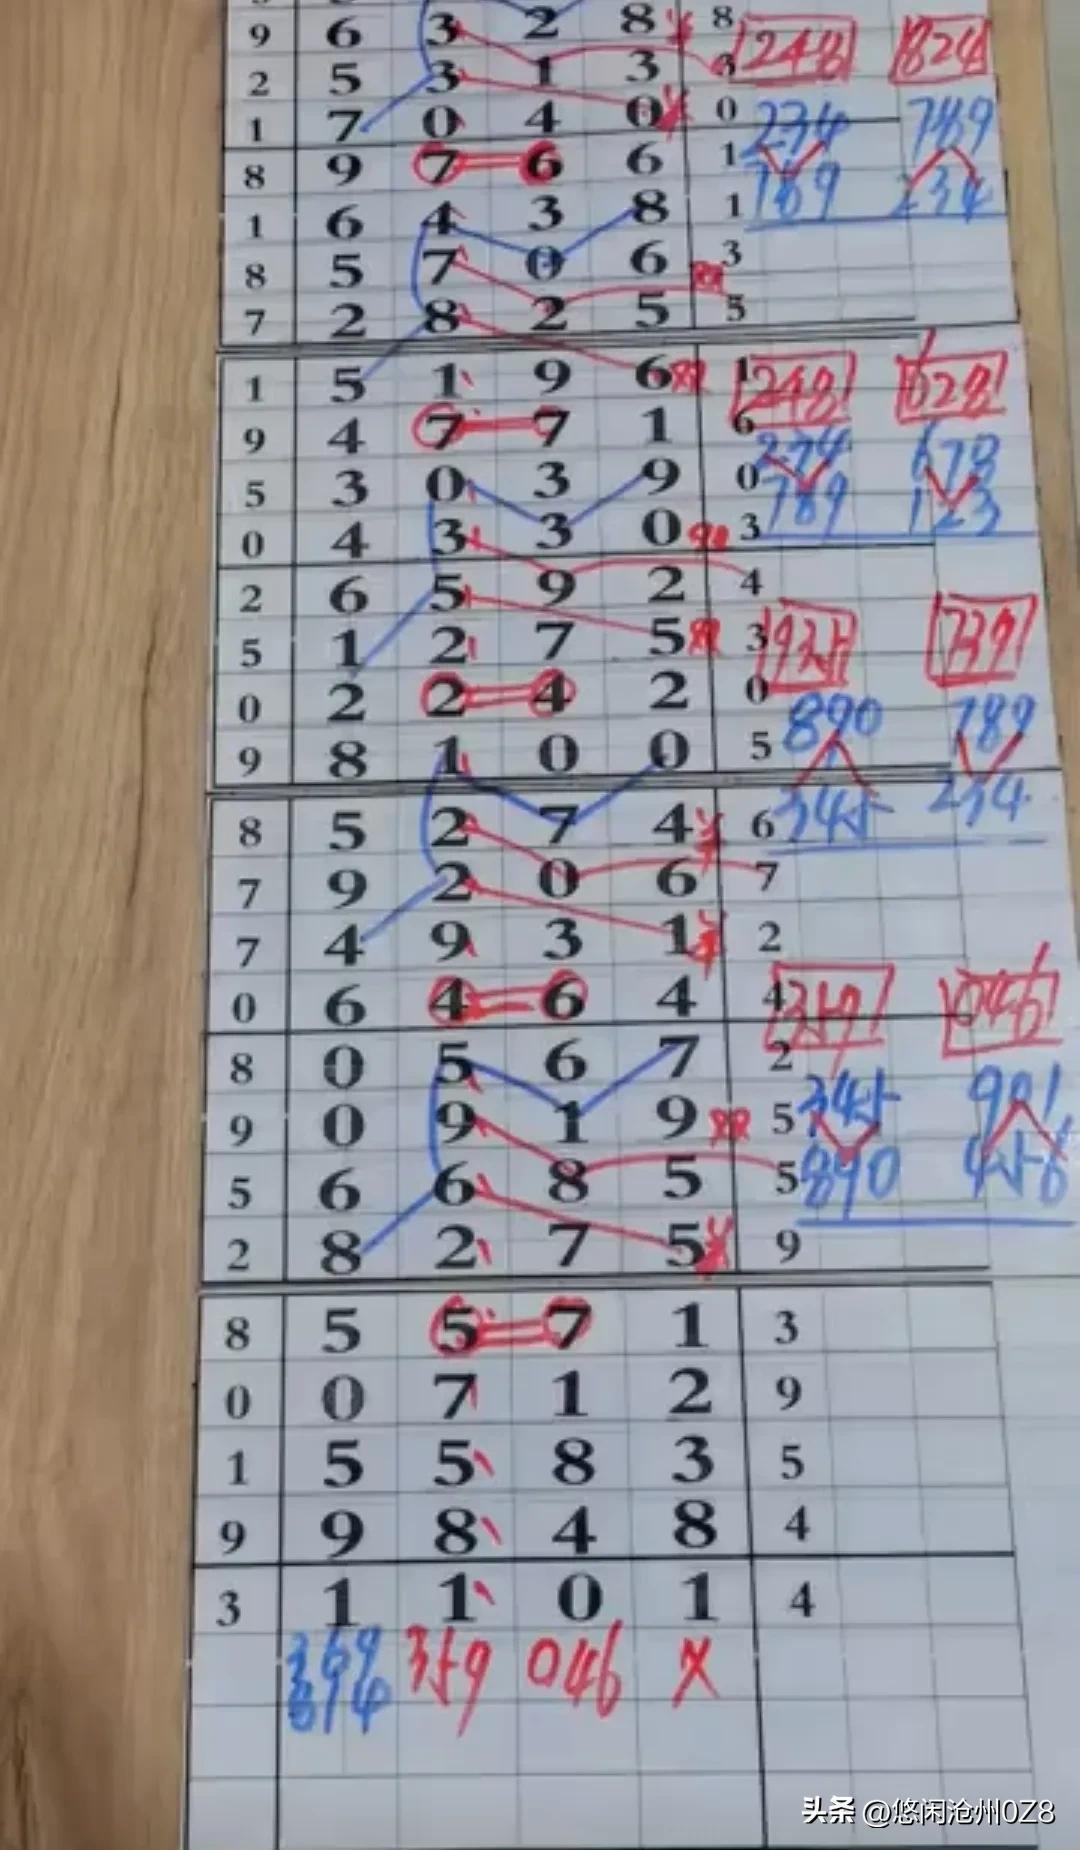 9 6 3 2 8 8
2 5 3 1 3 3 248 824
1 7 0 4 0 0 234 789
8 9 7 6 6 1 789 234
1 6 4 3 8 1
8 5 7 0 6 3
7 2 8 2 5 5
1 5 1 9 6 1 248 628
9 4 7 7 1 6 234 678
5 3 0 3 9 0 789 123
0 4 3 3 0 3
2 6 5 9 2 4
5 1 2 7 5 3 935 739
0 2 2 4 2 0 890 789
9 8 1 0 0 5
8 5 2 7 4 6 345 234
7 9 2 0 6 7
7 4 9 3 1 2
0 6 4 6 4 4 359 046
8 0 5 6 7 2 345 901
9 0 9 1 9 5
5 6 6 8 5 5 890 456
2 8 2 7 5 9
8 5 5 7 1 3
0 0 7 1 2 9
1 5 5 8 3 5
9 9 8 4 8 4
3 1 1 0 1 4
359 046 X
头条 @悠闲沧州0Z8